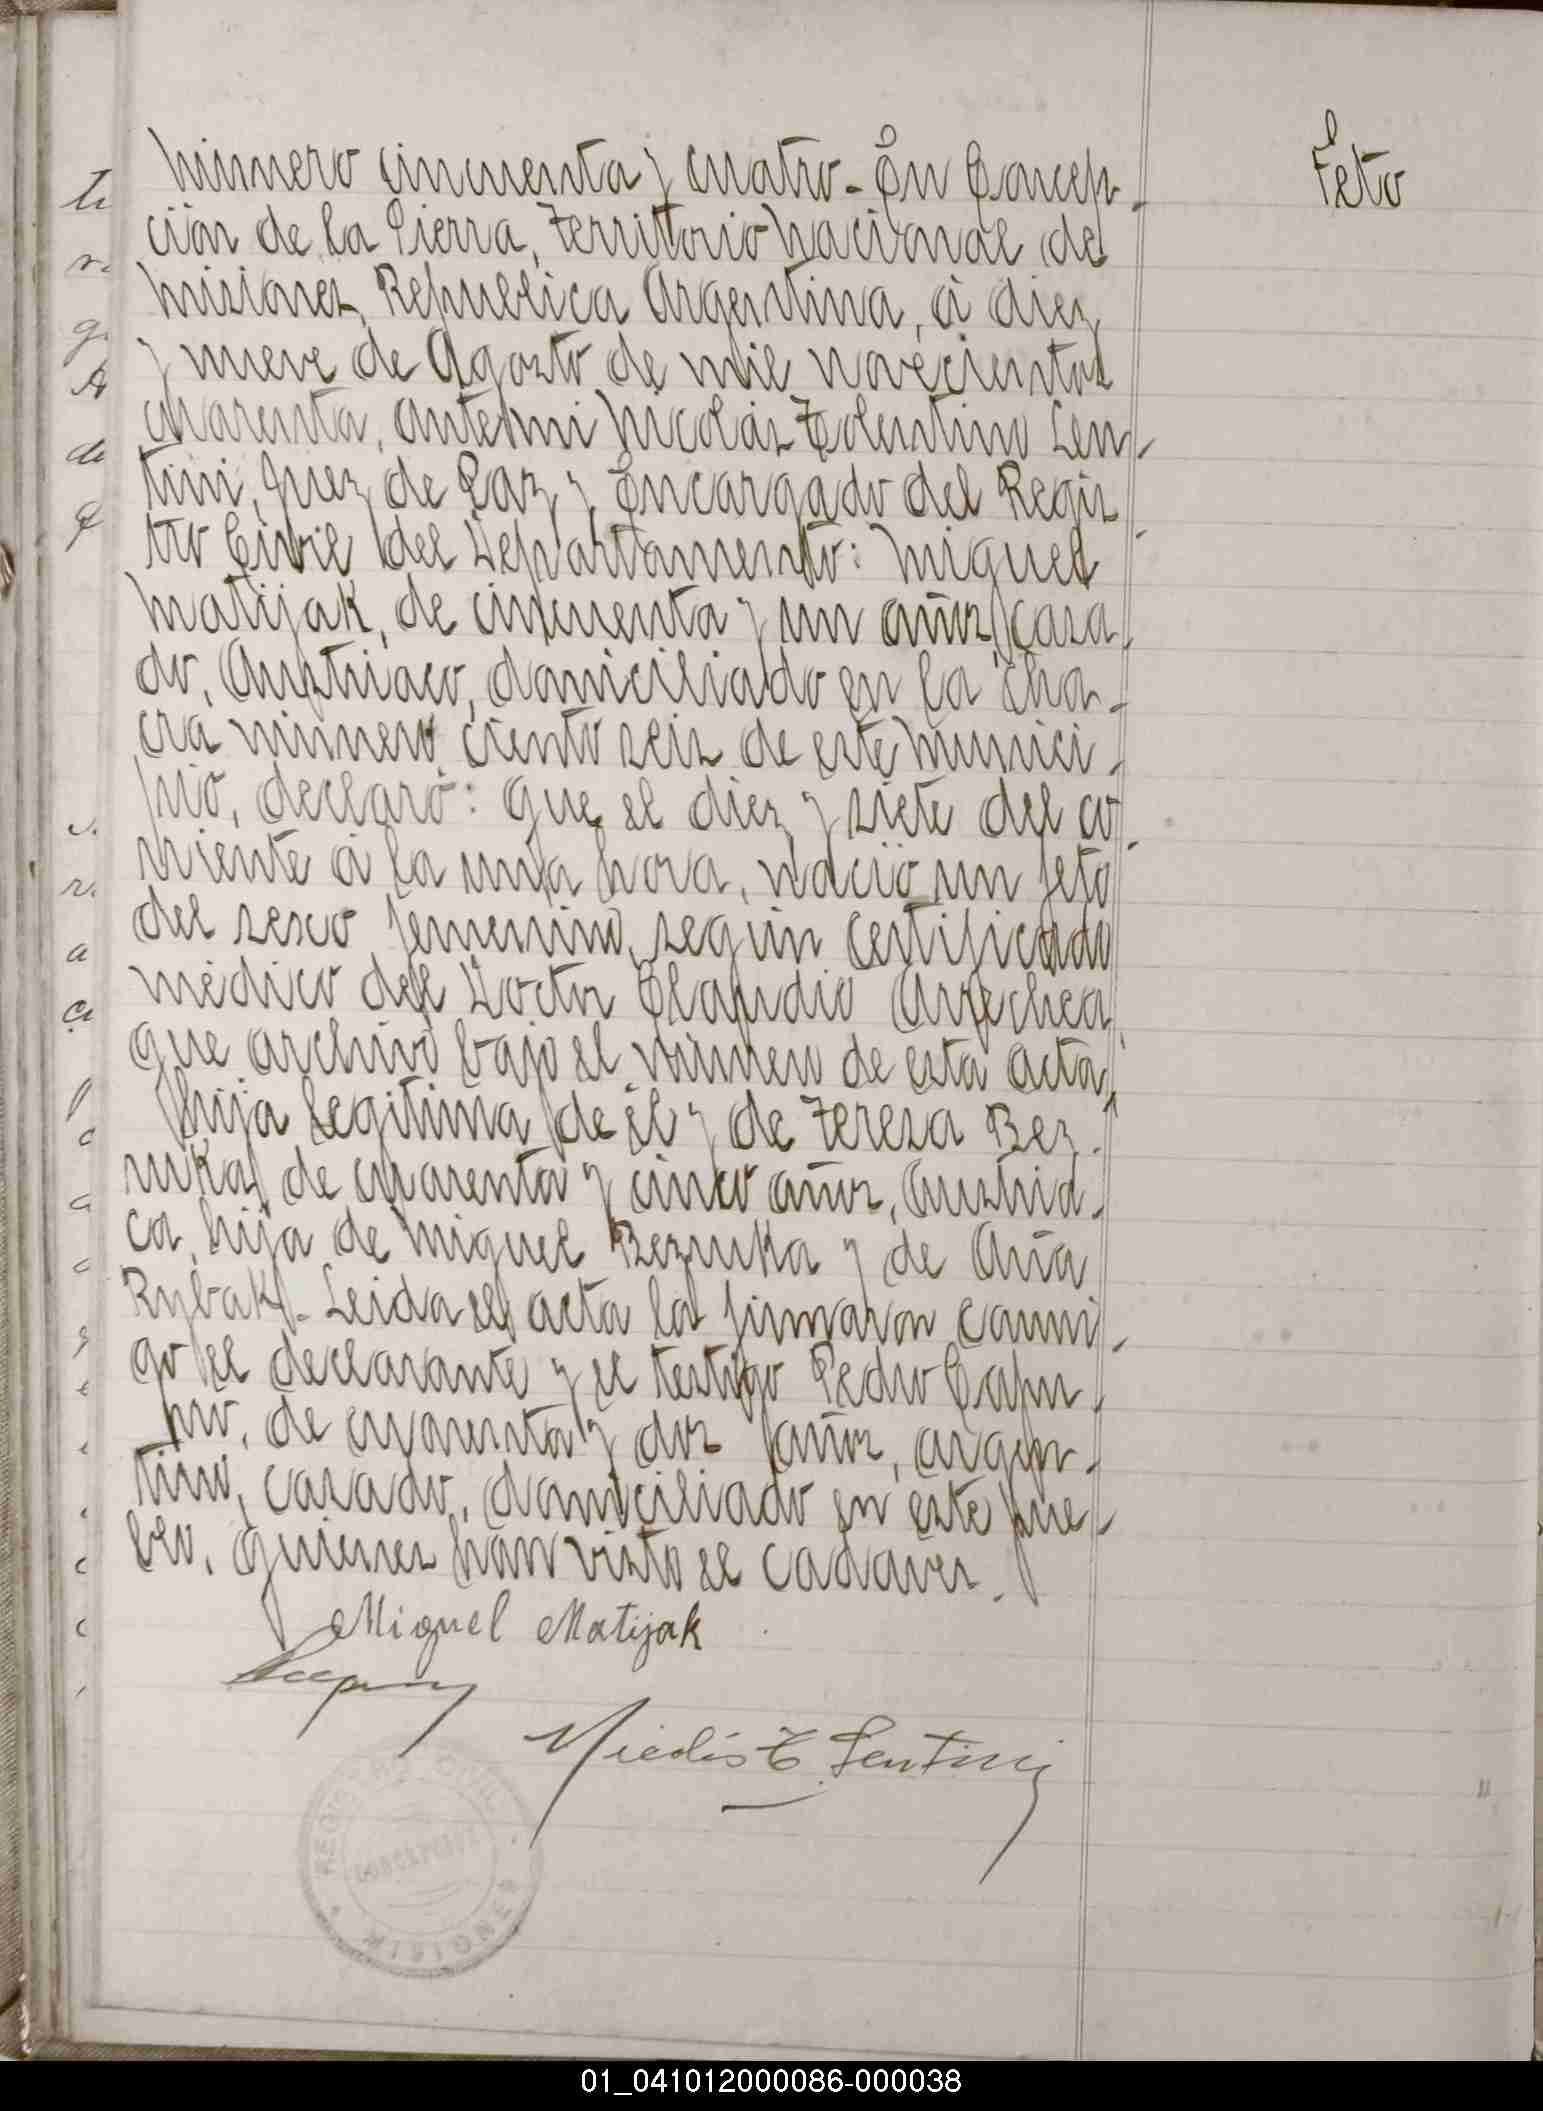 Feto
Número cincuenta y cuatro - En Concep-
ción de la Sierra, Territorio Nacional de
Misiones, República Argentina, á diez
y nueve de Agosto de mil novecientos
cuarenta, ante mi Nicolás Tolentino Len-
tini, Juez de Paz y Encargado del Regis
tro Civil del Departamento: Miguel
Matijak, de cincuenta y un años, casa-
do, Austriaco, domiciliado en la cha-
cra número ciento seis de este munici-
pio, declaró: Que el diez y siete del co-
rriente á la una hora, nació un feto
del sexo femenino, según certificado
médico del Doctor Claudio Arrechea,
que archivo bajo el número de esta acta,
hija legitima de él y de Teresa Bez-
ruka, de cuarenta y cinco años, Austria-
ca, hija de Miguel Bezruka y de Ana
Rybak.- Leida el acta la firmaron conmi-
go el declarante y el testigo Pedro Capu-
rro, de cuarenta y dos años, argen-
tino, casado, domiciliado en este pue-
blo, quienes han visto el cadaver.
Miguel Matijak
Nicolás T. Lentini
REGISTRO CIVIL
CONCEPCION
MISIONES
01_041012000086-000038